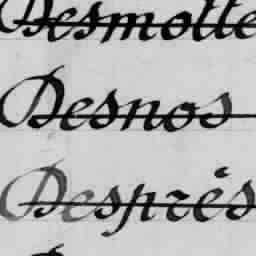 Desmotte
Desnos
Després